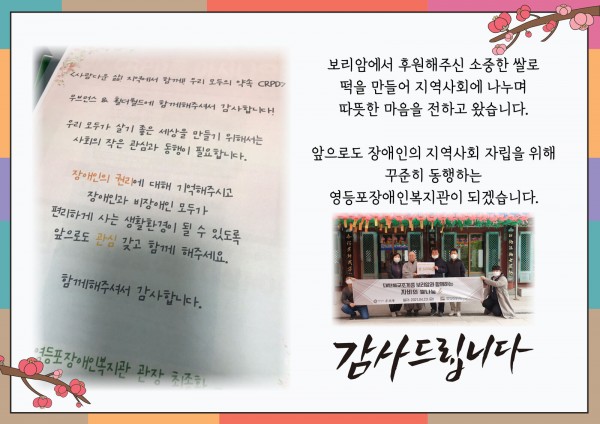 <사람다운 삶! 지역에서 함께! 우리 모두의 약속 CRPD>
감사합니다!
우리 모두가 살기 좋은 세상을 만들기 위해서는
사회의 작은 관심과 동행이 필요합니다.
장애인의 권리에 대해 기억해주시고
장애인과 비장애인 모두가
편리하게 사는 생활환경이 될 수 있도록
앞으로도 관심 갖고 함께 해주세요.
함께해주셔서 감사합니다.
영등포장애인복지관 관장
보리암에서 후원해주신 소중한 쌀로
떡을 만들어 지역사회에 나누며
따뜻한 마음을 전하고 왔습니다.
앞으로도 장애인의 지역사회 자립을 위해
꾸준히 동행하는
영등포장애인복지관이 되겠습니다.
대한불교조계종 보리암과 함께하는
자비의 쌀나눔
감사드립니다